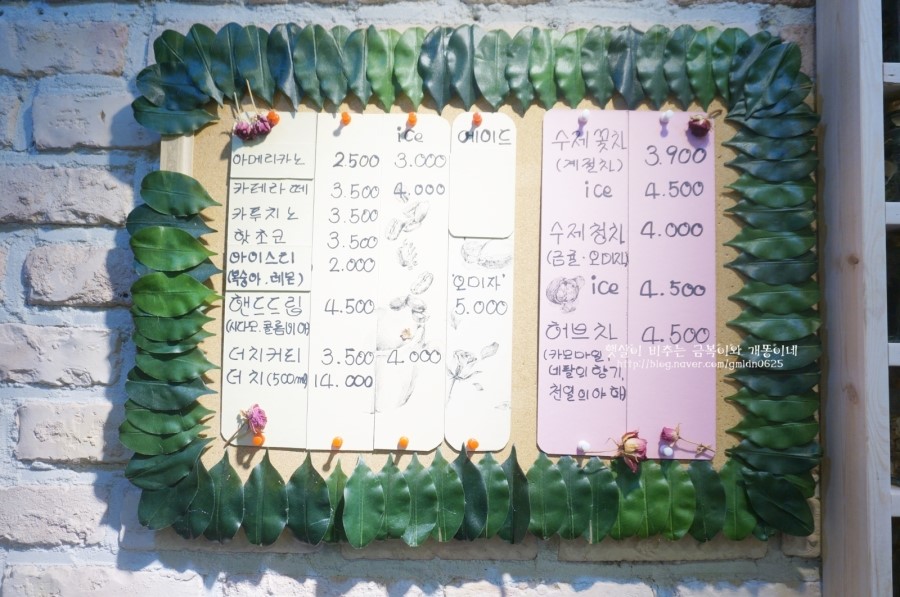 ice 에이드
아메리카노 2500 3.000
카페라떼 3.500 4.000
카푸치노 3.500
핫초코 3.500
아이스티 2.000
(복숭아.레몬)
'오미자'
핸드드립 4.500 5.000
(시다모.콜롬비아)
더치커피 3.500 4.000
더치(500ml) 14.000
수제꽃차 3.900
(계절차)
ice 4.500
수제청차 4.000
(금귤·오미자)
ice 4.500
허브차 4.500
(카모마일,
네팔의향기,
천열의야해)
햇살이 비추는 금복이와 개똥이네
http://blog.naver.com/gmldn0625